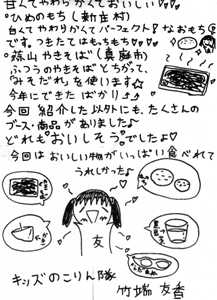 甘くてやわらかくておいしい♡♡
♡ひめのもち(新庄村)
白くてやわらかくてパーフェクト!なおもち
です。つきたてはもっちもち♡♡
♡蒜山やきそば(真庭市)
ふつうのやきそばとちがって、
「みそだれ」を使います☆
今年にできたばかり♪
今回紹介した以外にも、たくさんの
ブース・商品がありました♪
どれもおいしそうでしたよ♡
今回はおいしい物がいっぱい食べれて
うれしかった♪
友
キッズのこりん隊
竹端 友香